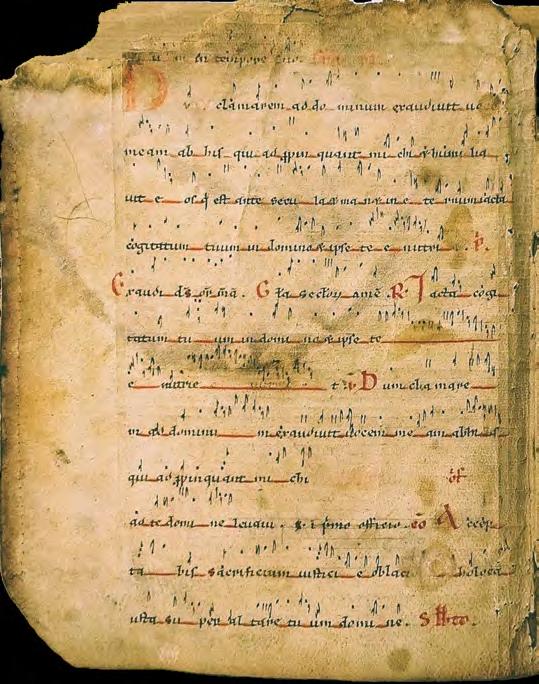 in tempore
D clamarem ad do minum exaudiuit uo
meam ab his qui ad ꝓpin quant mi chi & humi lia
uit e os qͥ est ante secu la & ma n& in e te rnum iacta
cogitatum tuum in domino & ipse te e nutri
Exaudi ds or mea . Gła secłor ame . R Iacta cogi
tatum tu um in domi no & ipse te
e nutrie t ℣ Dum cla mare
m ad dominu m exaudiuit uocem me am ab his
qui ad ꝓpinquant mi chi of
ad te domi ne leuaui . i pͥmo officio . co Accep
ta bis sacrificium iustici e oblaci holoca
usta su per al tare tu um domi ne .